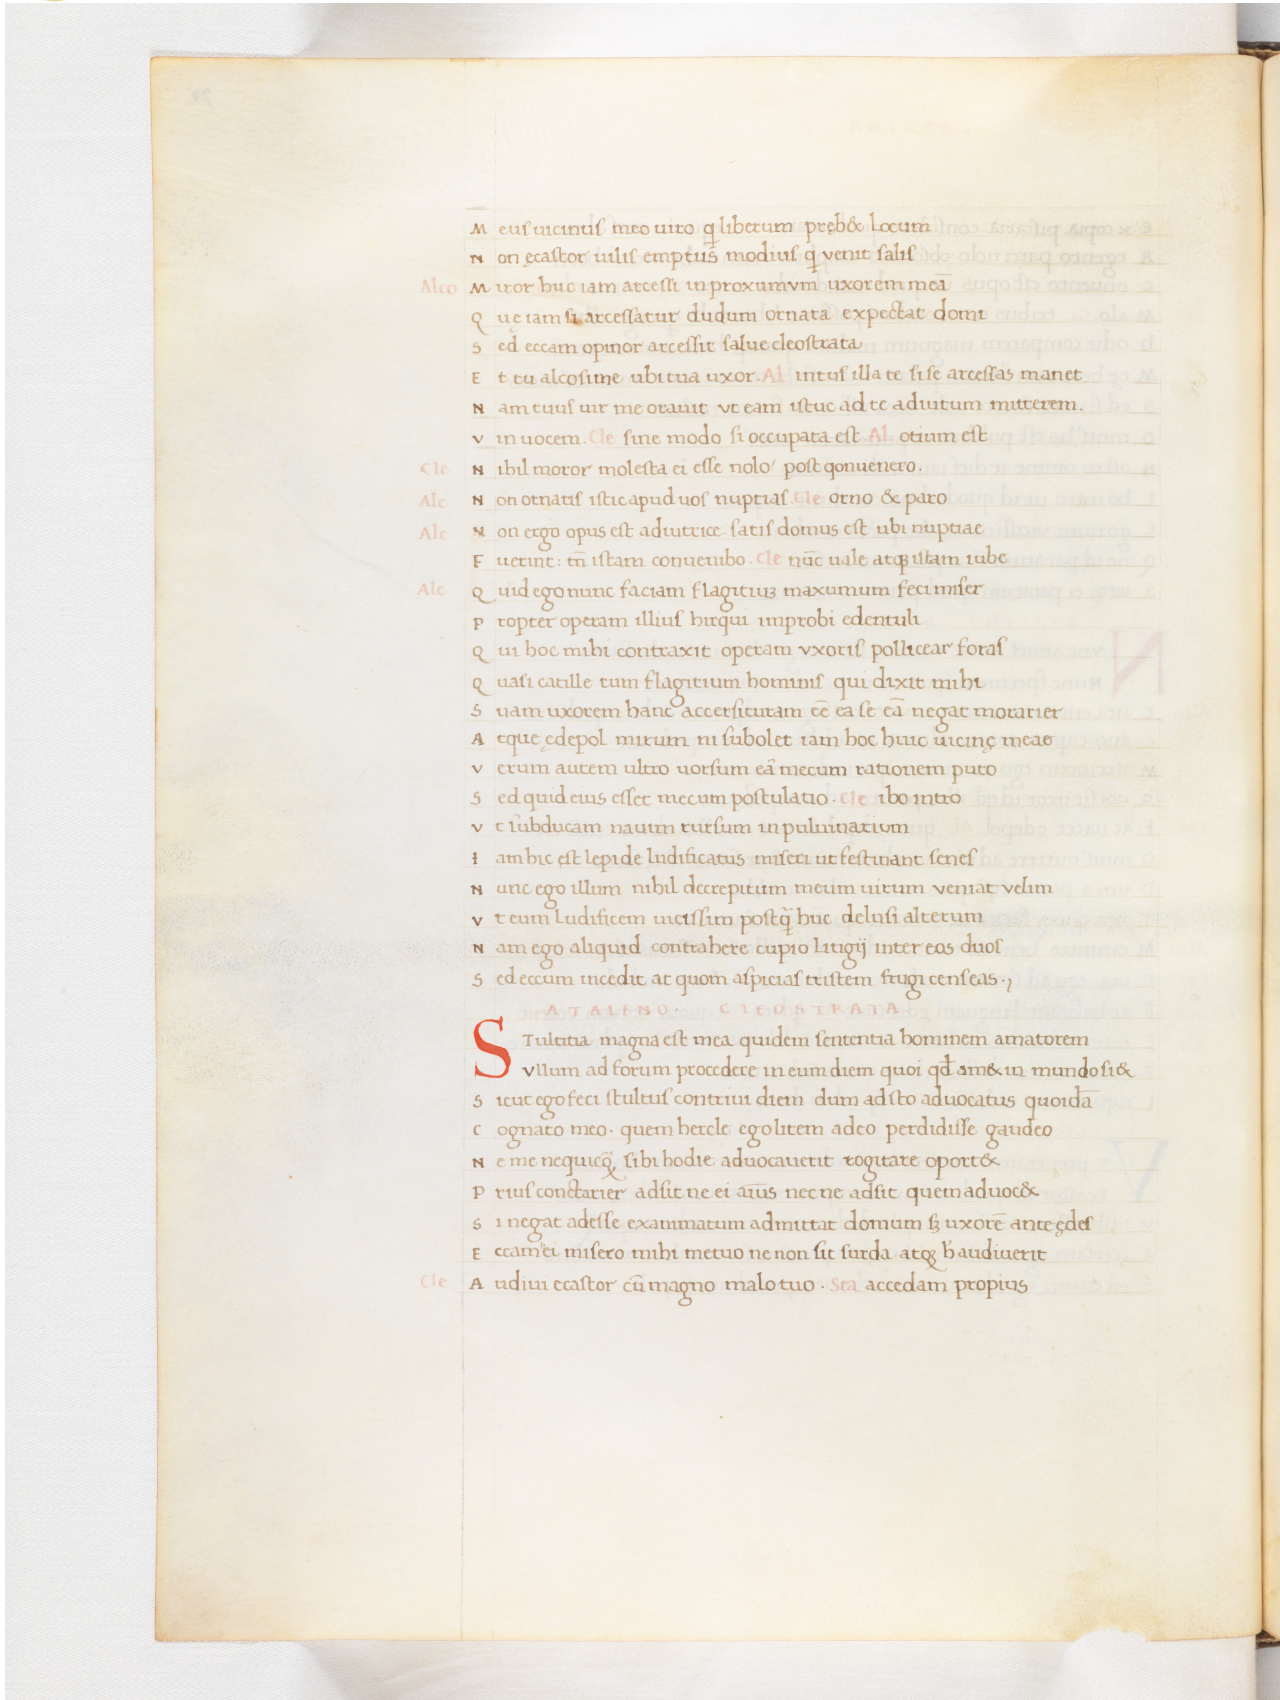 Meus uicinus meo uiro q̄ liberum pręb& locum
Non ęcastor uilis emptus modius q̄ venit salis
Alco Miror huc iam arcessi in proxumum uxorem meā
Quę iam si arcessatur dudum ornata expectat domi
Sed eccam opinor arcessit salue cleostrata
Et tu alcosime ubi tua uxor. Al intus illa te si se arcessas manet
Nam tuus uir me orauit ut eam istuc ad te adiutum mitterem.
Vin uocem. Cle sine modo si occupata est. Al otium est
Cle Nihil moror molesta ei esse nolo post qonuenero.
Alc Non ornatis istic apud uos nuptias. Cle orno & paro
Alc Non ergo opus est adiutrice. satis domus est ubi nuptiae
Fuerint: tn̄ istam conuenibo. Cle nūc uale atqꝫ istam iube
Alc Quid ego nunc faciam flagitiuꝫ maxumum feci miser
Propter operam illius hirqui improbi edentuli
Qui hoc mihi contraxit operam uxoris pollicear foras
Quasi catille tum flagitium hominis qui dixit mihi
Suam uxorem hanc accersituram eē ea se eā negat morarier
Atque ędepol mirum ni subolet iam hoc huic uicinę meae
Verum autem ultro uorsum eā mecum rationem puto
Sed quid eius esset mecum postulatio. Cle ibo intro
Vt subducam nauim rursum in puluinarium
Iam hic ęst lepide ludificatus miseri ut festinant senes
Nunc ego illum nihil decrepitum meum uirum veniat velim
Vt eum ludificem uicissim postq̄ huc delusi alterum
Nam ego aliquid contrahere cupio litigij inter eos duos
Sed eccum incedit at quom aspicias tristem frugi censeas.
STALINO. CLEOSTRATA
Stultitia magna est mea quidem sententia hominem amatorem
Vllum ad forum procedere in eum diem quoi qd̄ am& in mundo si&
Sicut ego feci stultus contriui diem dum adsto aduocatus quoidā
Cognato meo. quem hercle ego litem adeo perdidisse gaudeo
Ne me nequicq̄ sibi hodie aduocauerit rogitare oport&
Prius conctarier adsit ne ei aīus nec ne adsit quem aduoc&
Si negat adesse exanimatum admittat domum sꝫ uxorē ante ędes
Eccam ei misero mihi metuo ne non sit surda atqꝫ h̄ audiuerit
Cle Audiui ecastor cū magno malo tuo. Sta accedam propius